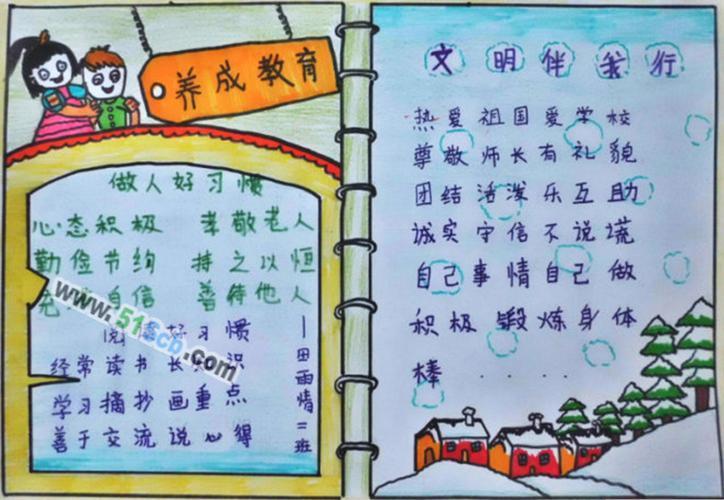 养成教育
做人好习惯
心态积极 孝敬老人
勤俭节约 持之以恒
自信 善待他人
阅 好习惯
经常读书长 识
学习摘抄画重点
善于交流说心得
—田雨情二班
文明伴我行
热爱祖国爱学校
尊敬师长有礼貌
团结活泼乐互助
诚实守信不说谎
自己事情自己做
积极锻炼身体
棒.....